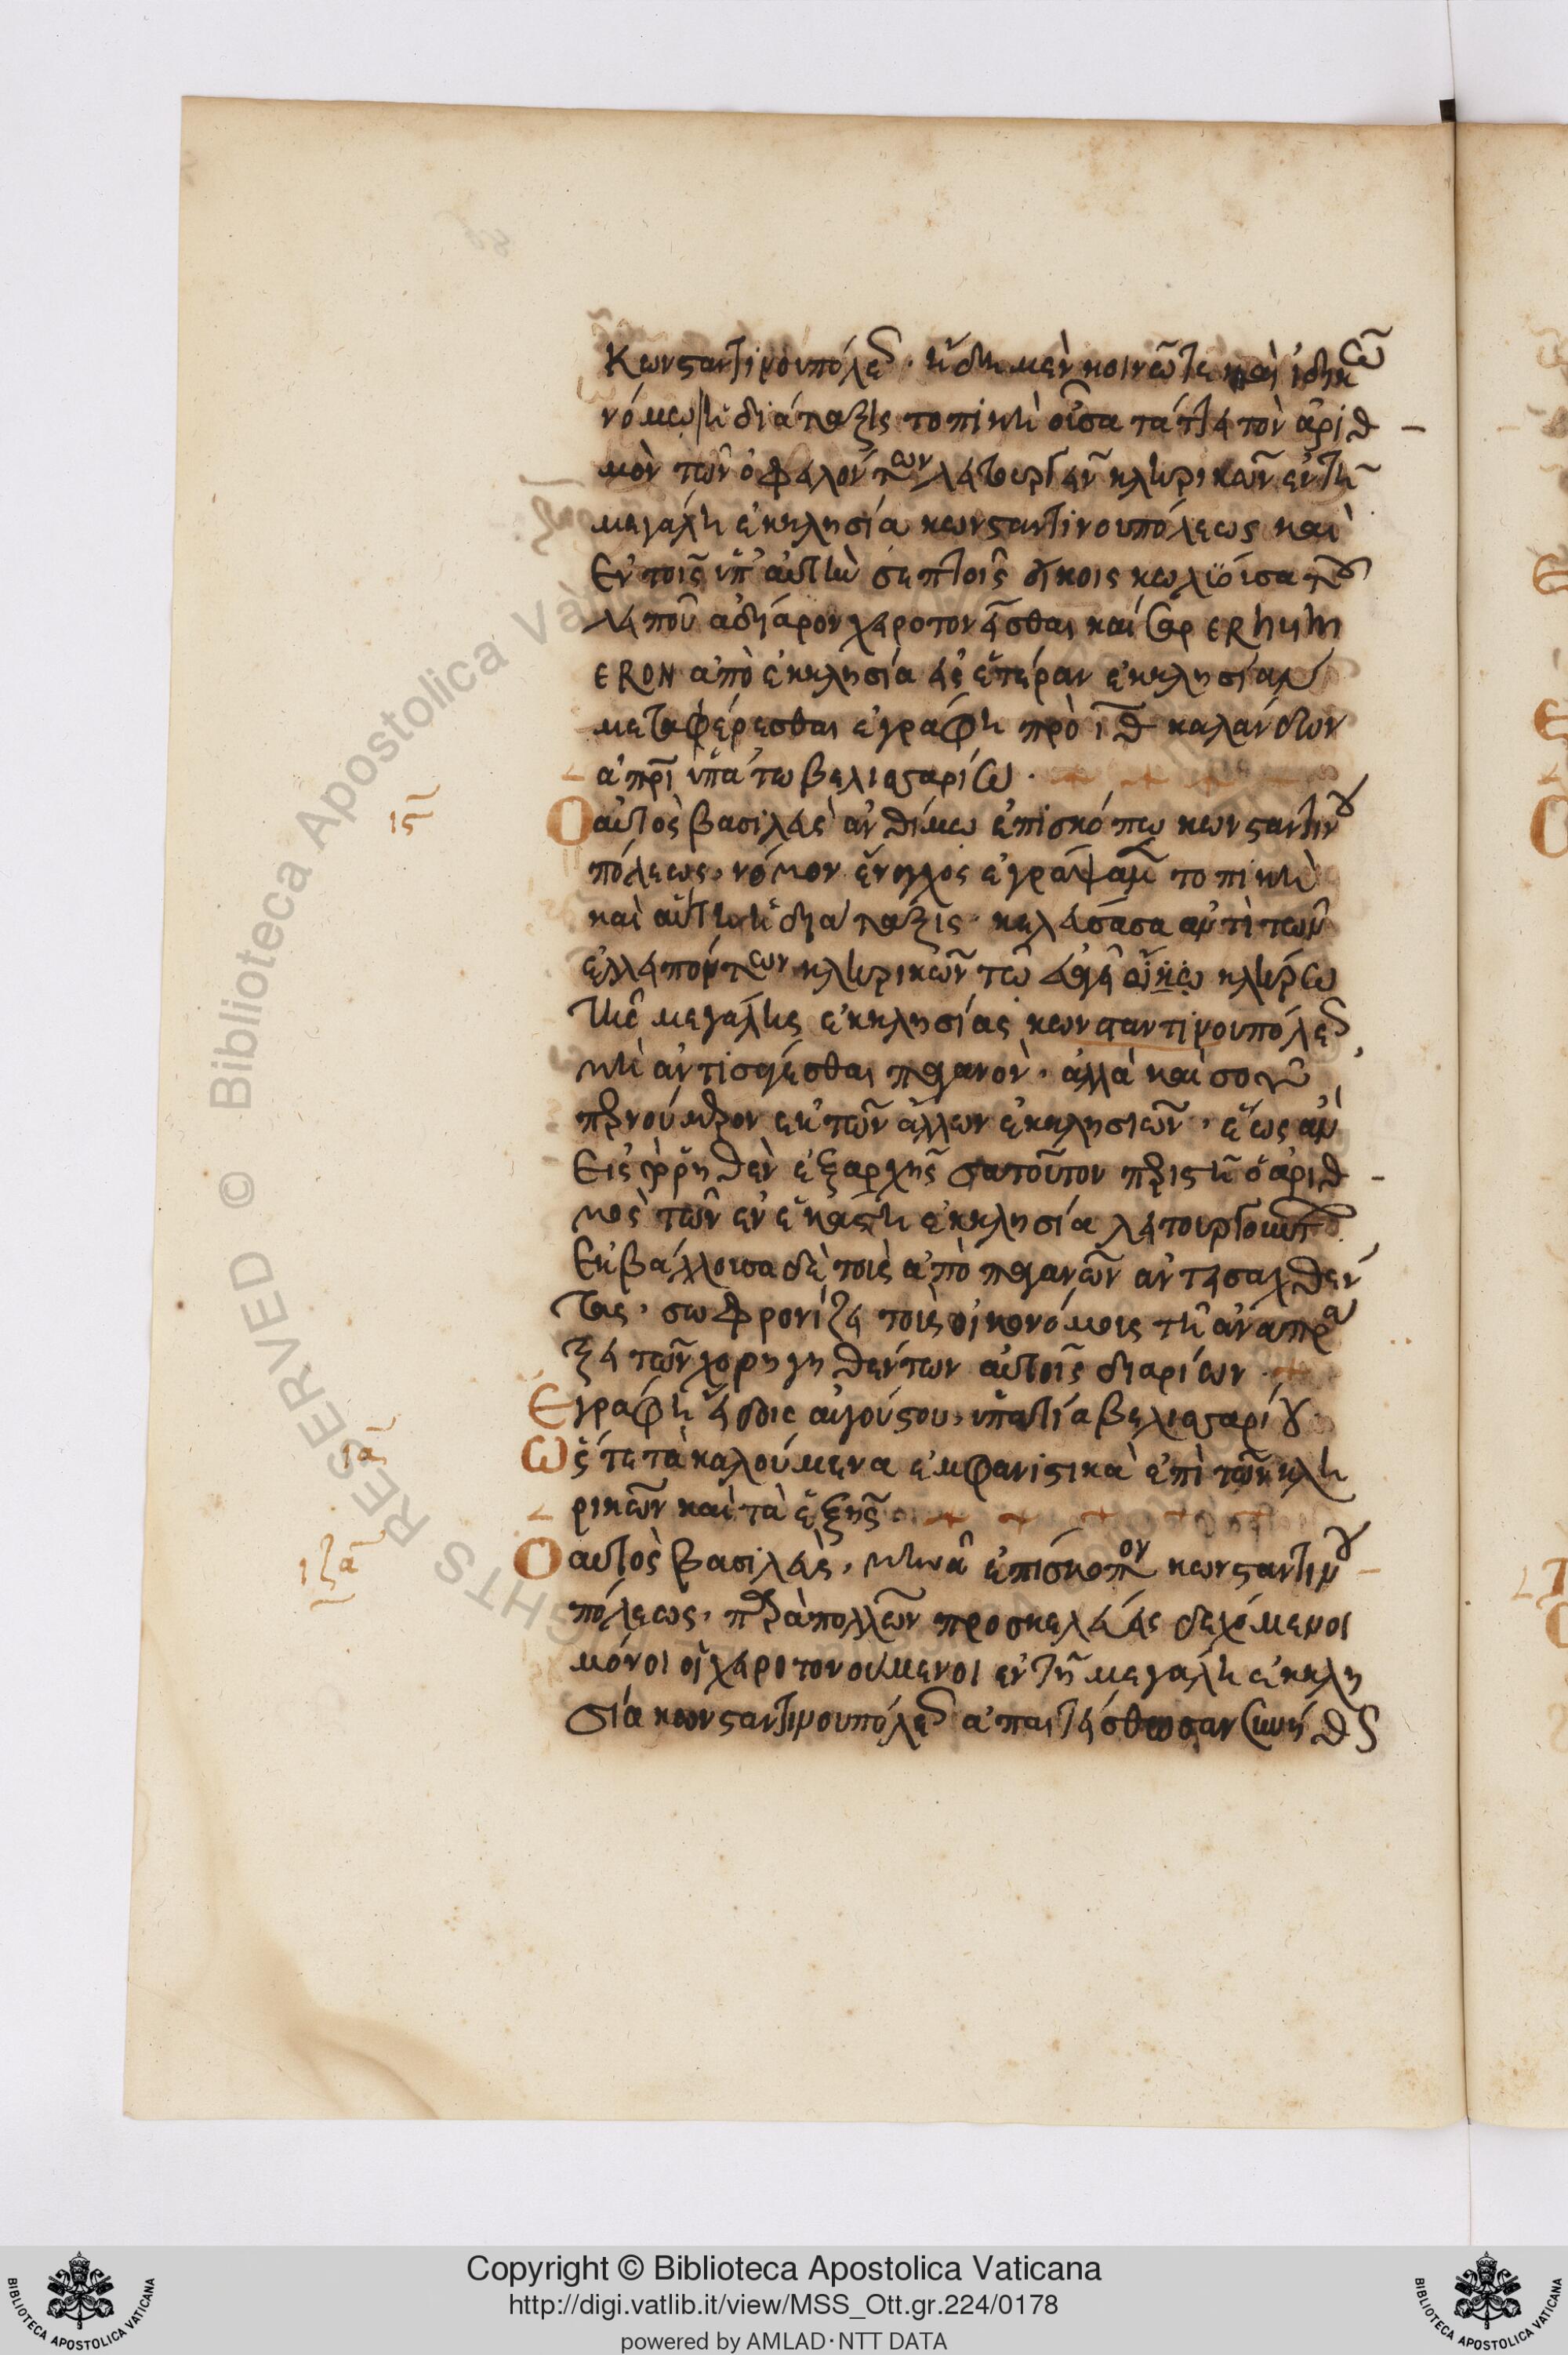 Κωνσταντινουπόλε ἤδη μὲν κοινῶ τε καὶ ἰδικῶ
νόμω ἡ διάταξις τοπικὴ οὖσα τάττει τὸν ἀριθ
μὸν τῶν ὀφειλόντων λειτουργεῖν κληρικῶν ἐν τῆ
μεγάλη ἐκκλησία κωνσταντινουπόλεως καὶ
Ἐν τοῖς ὑπ' αὐτὴν σεπτοῖς οἴκοις κωλύουσα τοῦ
λειποῦ χειροτονεῖσθαι καὶ
ERON ἀπὸ ἐκκλησία εἰς ἑτέραν ἐκκλησίαν
μεταφέρεσθαι ἐγράφη πρὸ ιθ καλανδων
ἀπρι ὑπάτω βελισαρίω.
ις
Ο αὐτὸς βασιλεὺς ἀνθίμω ἐπισκόπω κωνσταντινου
πόλεως, νόμον ἔνοχος ἐγράψαμ τοπικὴ
καὶ αὕτη ἡ διάταξις· κελεύσασα ἀντὶ τῶν
ἐλλειπόντων κληρικῶν τῶ οἴκω κλήρω
τῆς μεγάλης ἐκκλησίας κωνσταντινουπόλε
μὴ ἀντισάγεσθαι ἀλλὰ καὶ
ἐκ τῶν ἄλλων ἐκκλησιῶν, ἕως ἂν
Εἰς ἐξαρχῆς ὁ ἀριθ
μὸς τῶν ἐν ἑκάστη ἐκκλησία λειτουργούντ
Ἐκβάλλουσα δὲ τοὺς ἀπὸ παγανῶν ἀντεισαχθέν
τας, σωφρονίζει τοὺς οἰκονόμους τῆ ἀναπρά
ξει τῶν χορηγηθέντων αὐτοῖς διαρίων
Ἐγράφη εἰδοῖς αὐγούστου, ὑπατία βελισαρίου
ια
Ὥστε τὰ καλούμενα ἐμφανιστικὰ ἐπὶ τῶν κλη
ρικῶν καὶ τὰ ἑξῆς
ιζα
Ο αὐτὸς βασιλεὺς, μηνᾶ ἐπίσκοπον κωνσταντινου
πόλεως, πολλῶν προσκελεύεις δεχόμενοι
μόνοι οἱ χειροτονούμενοι ἐν τῆ μεγάλη ἐκκλη
σία κωνσταντινουπόλε ἀπαιτείσθωσαν συνήθ
Copyright © Biblioteca Apostolica Vaticana
http://digi.vatlib.it/view/MSS_Ott.gr.224/0178
powered by AMLAD·NTT DATA
BIBLIOTECA APOSTOLICA VATICANA
BIBLIOTECA APOSTOLICA VATICANA